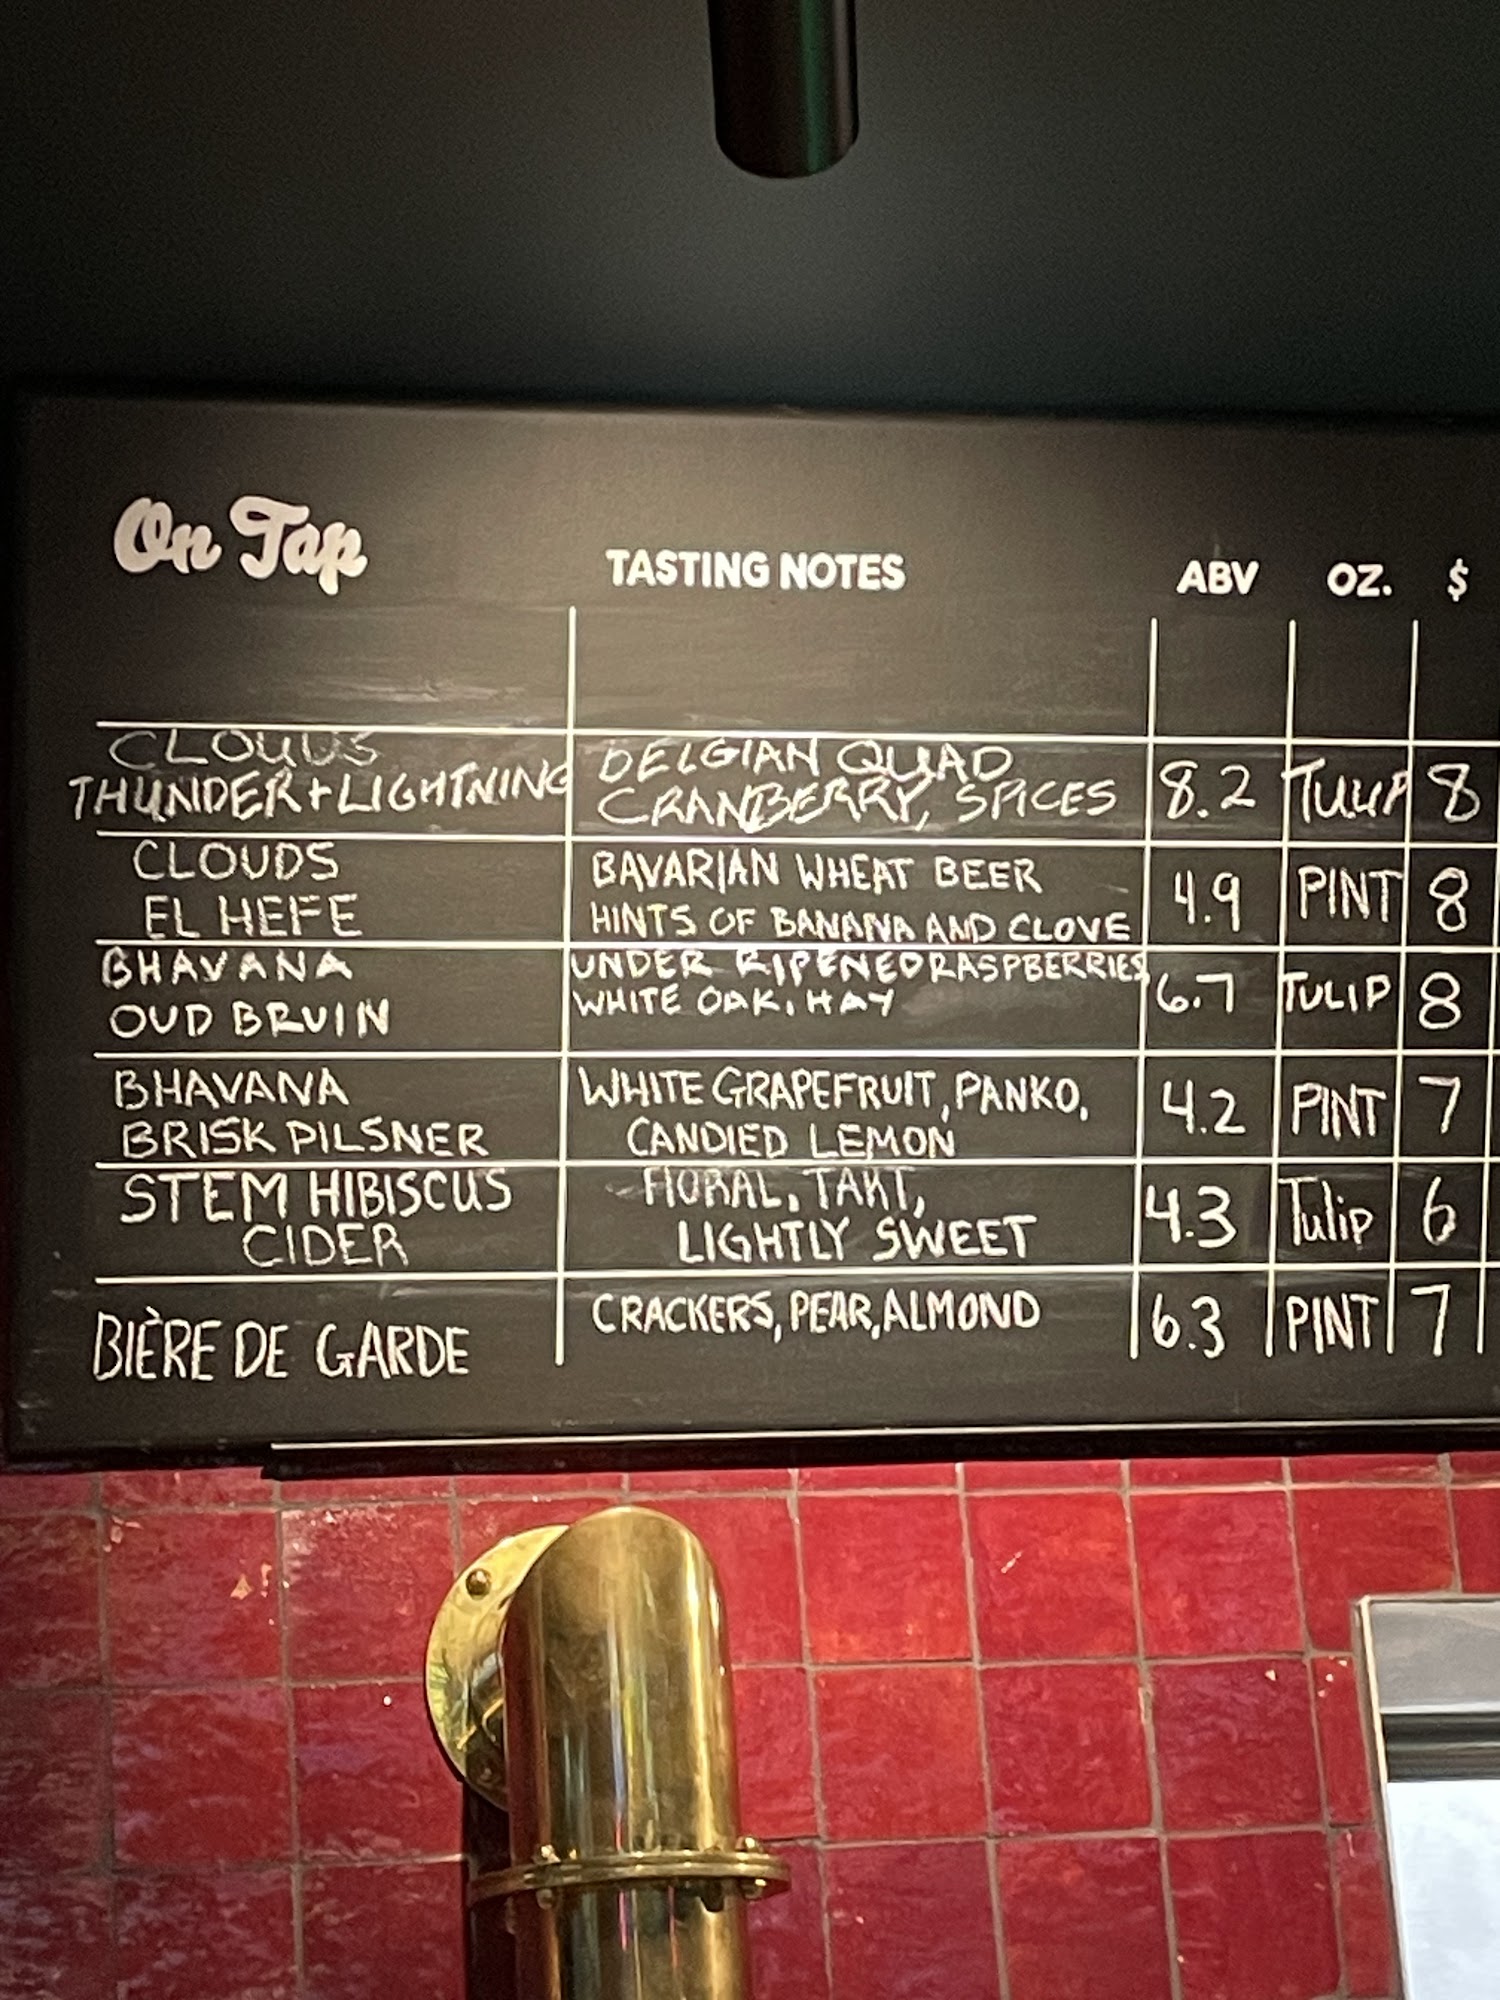 On Tap TASTING NOTES ABV OZ. $
CLOUDS
THUNDER+LIGHTNING
BELGIAN QUAD
CRANBERRY, SPICES
8.2 TULIP 8
CLOUDS
EL HEFE
BAVARIAN WHEAT BEER
HINTS OF BANANA AND CLOVE
4.9 PINT 8
BHAVANA
OUD BRUIN
UNDER RIPENED RASPBERRIES
WHITE OAK, HAY
6.7 TULIP 8
BHAVANA
BRISK PILSNER
WHITE GRAPEFRUIT, PANKO,
CANDIED LEMON
4.2 PINT 7
STEM HIBISCUS
CIDER
FLORAL, TART,
LIGHTLY SWEET
4.3 Tulip 6
BIÈRE DE GARDE
CRACKERS, PEAR, ALMOND
6.3 PINT 7